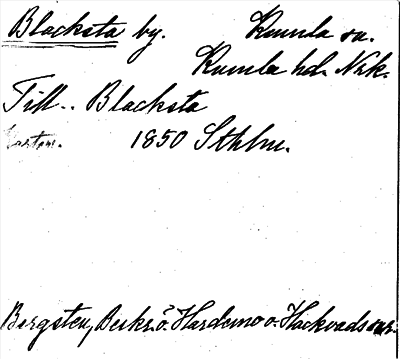 Blacksta by. Kumla sn.
Kumla hd. Närk.
Till.. Blacksta
1850 Sthlm.
Bergsten, Beskr. ö. Hardemo o. Hackvads snr.